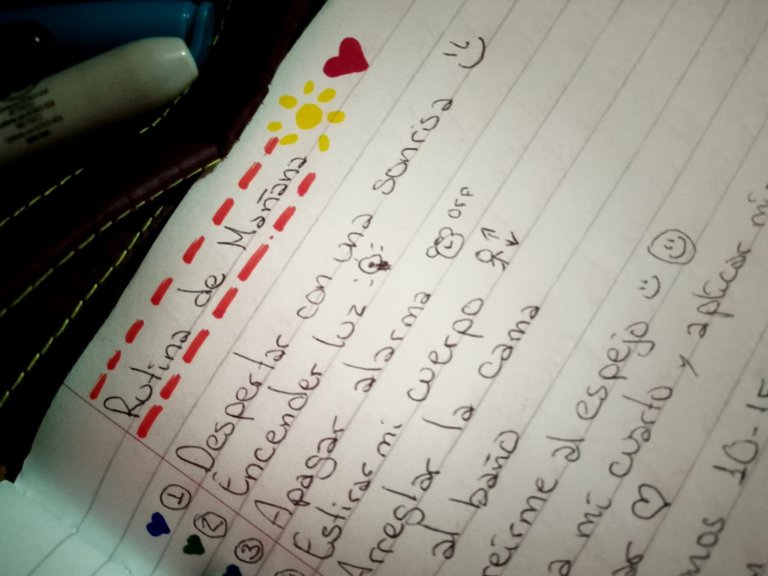 Rutina de Mañana
① Despertar con una sonrisa
② Encender luz
③ Apagar alarma OFF
Estirar mi cuerpo
Arreglar la cama
al baño
reirme al espejo
a mi cuarto y aplicar mi
ar
mos 10-15